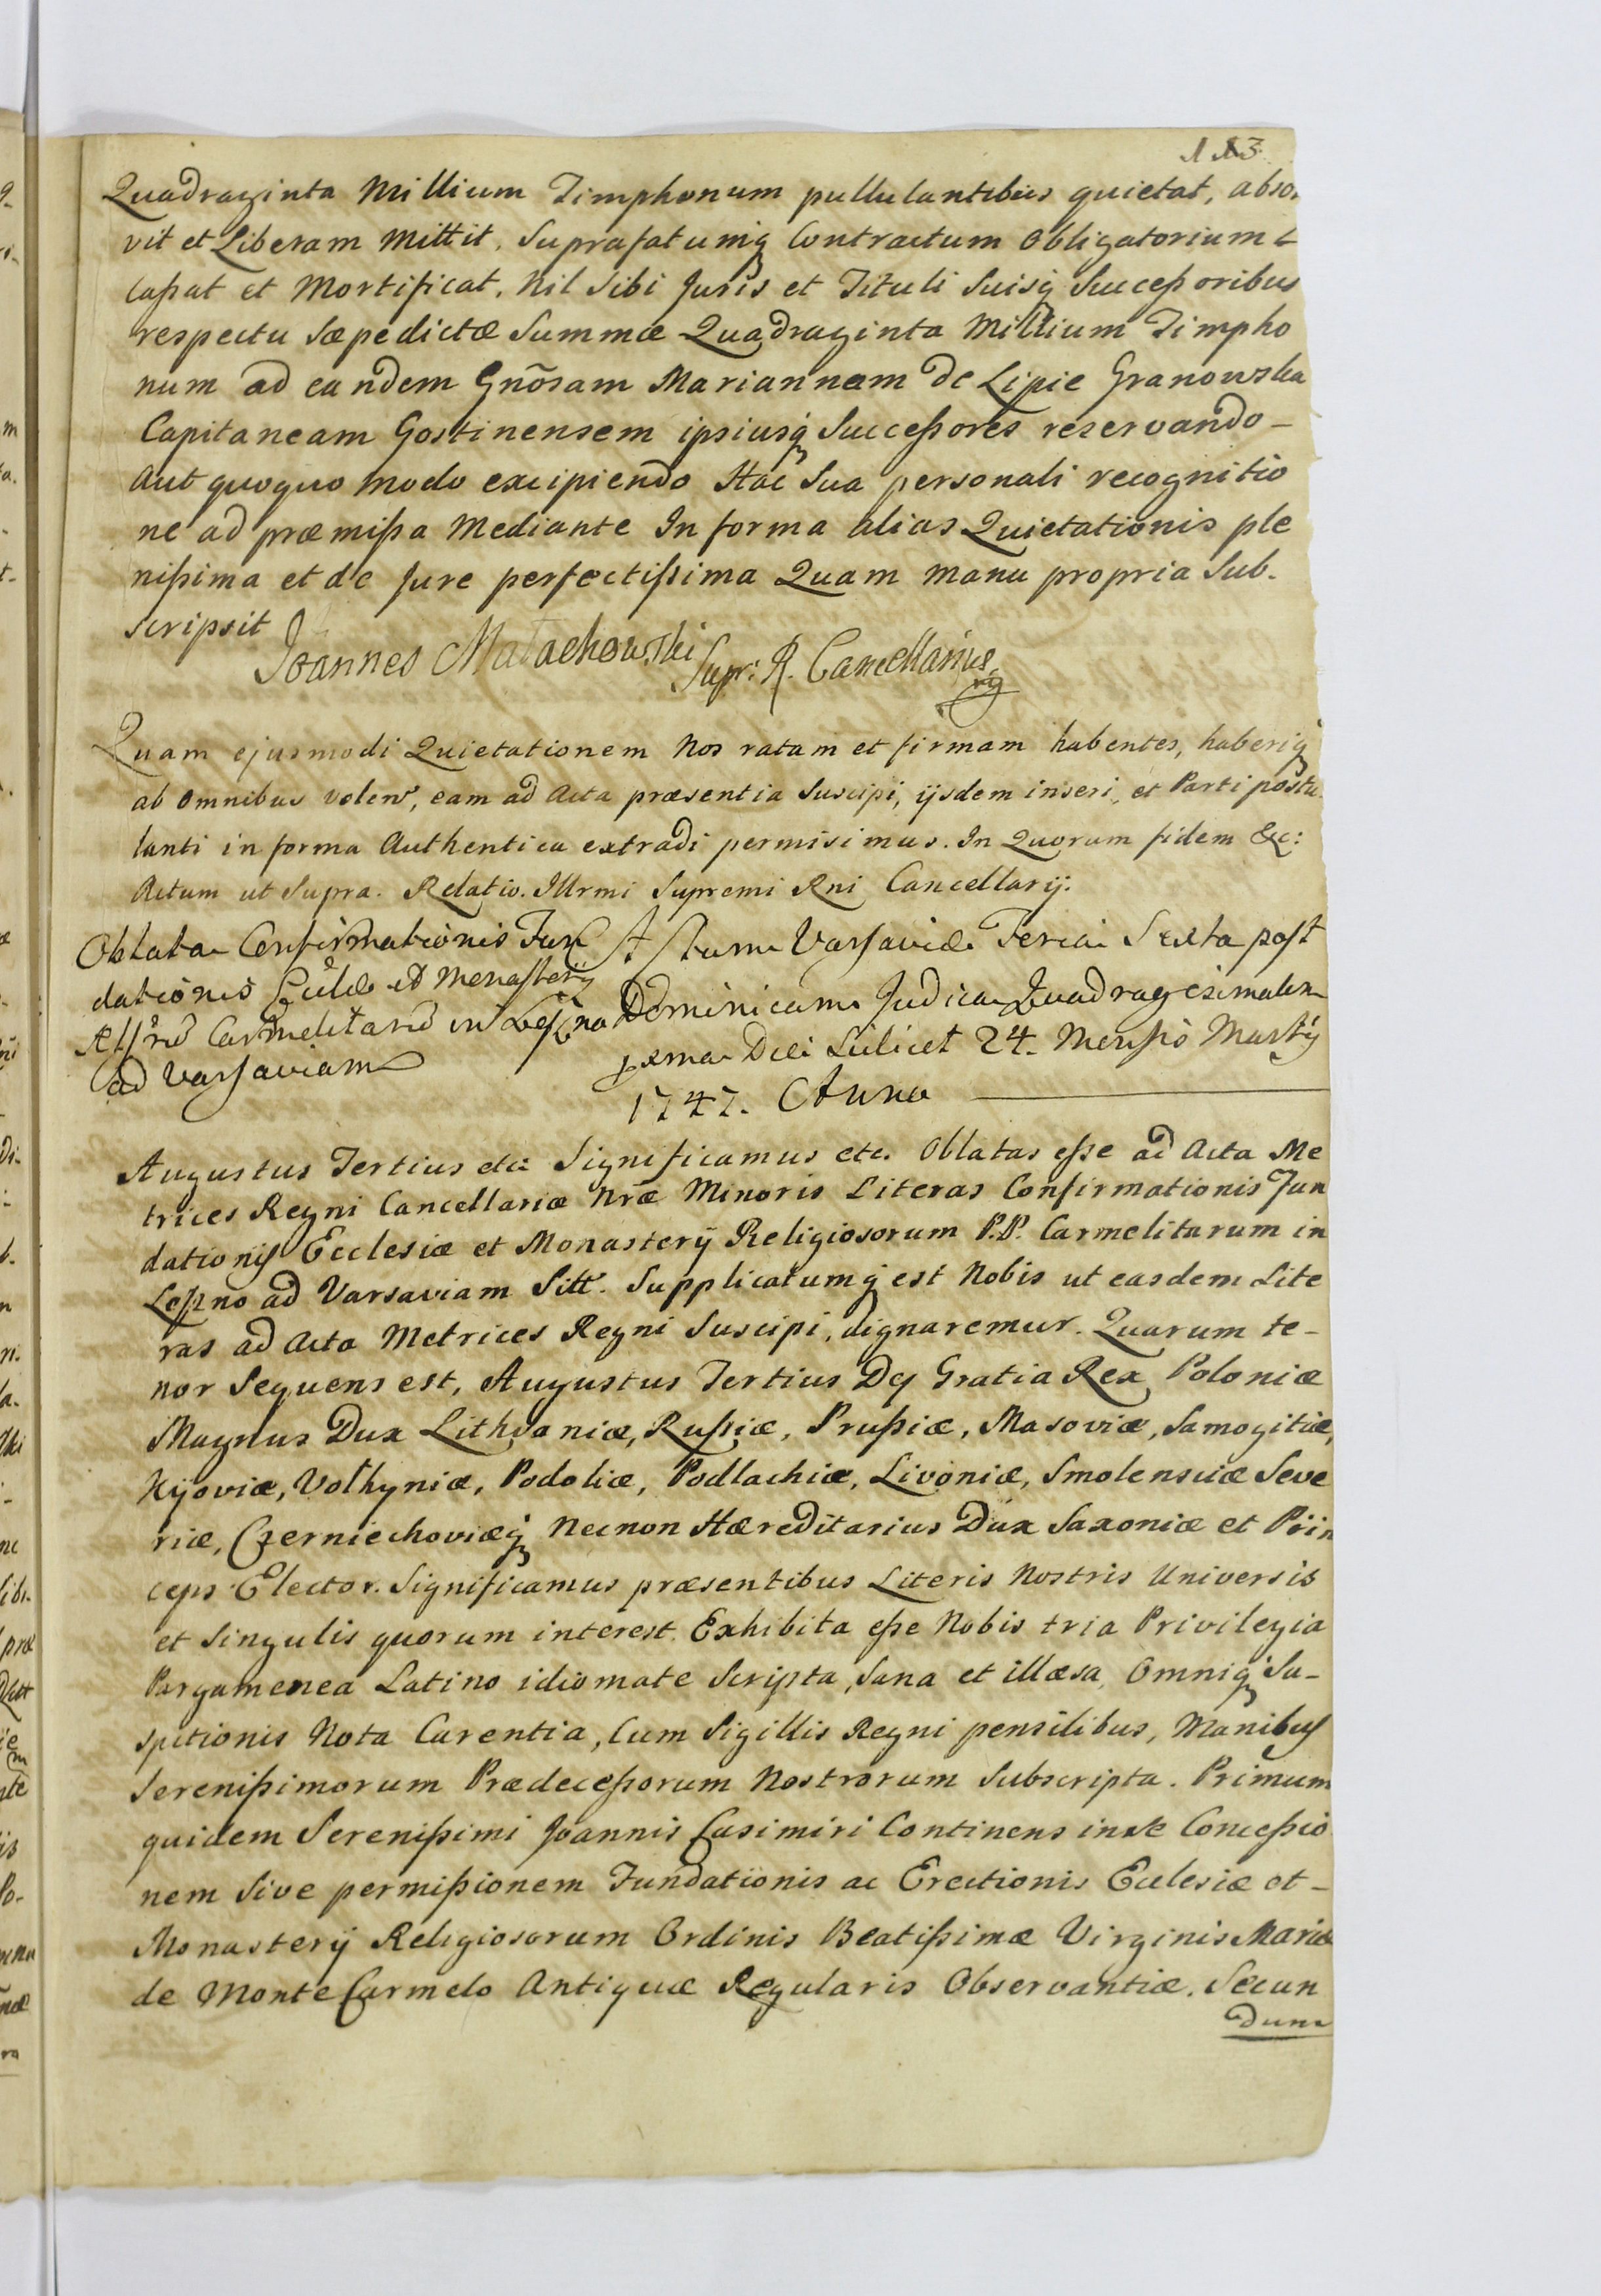 113
Quadraginta Millium Timphonum pullulantibus quietat, absol
vit et Liberam Mittit. Suprafatumq Contractum Obligatorium
Caßat et Mortificat. Nil Sibi Juris et Tituli Suisq Succeßoribus
respectu Sæpedictæ Summæ Quadraginta Millium Timpho
num ad eandem Gnõsam Mariannam de Lipie Granowska
Capitaneam Gostinensem ipsiusq Succeßores reservando
Aut quoquo modo excipiendo Hac Sua personali recognitio
ne ad præmißa Mediante In forma alias Quietationis ple
nißima et de Jure perfectißima Quam Manu propria Sub-
scripsit
Joannes Małachowski Supr: R. Cancellarius
Quam ejusmodi Quietationem Nos ratam et firmam habentes, haberiq
ab omnibus volen, eam ad Acta præsentia Suscipi, ijsdem inseri, et Parti postu
lanti in forma Authentica extradi permisimus. In Quorum fidem &c:
Actum ut Supra. Relatio. Illrmi Supremi Rni Cancellarij.
Oblata Confirmationis Fun
dationis Ecclæ et Monasterij
Carmelitarũ in Leszno
ad Varsaviam
Actum Varsaviæ Feria Sexta post
Dominicam Judica Quadragesimalem
pxma Die Scilicet 24. Mensis Martij
1747. Anno
Augustus Tertius etc Significamus etc. Oblatas eße ad Acta Me
trices Regni Cancellariæ Nræ Minoris Literas Confirmationis Fun
dationis Ecclesiæ et Monasterij Religiosorum P.P. Carmelitarum in
Leszno ad Varsaviam Sitt. Supplicatumq est Nobis ut easdem Lite
ras ad Acta Metrices Regni Suscipi, dignaremur. Quarum te-
nor Sequens est, Augustus Tertius Dej Gratia Rex Poloniæ
Magnus Dux Lithvaniæ, Rußiæ, Prußiæ, Masoviæ, Samogitiæ,
Kijoviæ, Volhyniæ, Podoliæ, Podlachiæ, Livoniæ, Smolensciæ Seve
riæ, Czerniechoviæq Necnon Hæreditarius Dux Saxoniæ et Prin
ceps Elector. Significamus præsentibus Literis Nostris Universis
et Singulis quorum interest. Exhibita eße Nobis tria Privilegia
Pargamenea Latino idiomate Scripta, Sana et illæsa, Omniq Su-
spitionis Nota Carentia, Cum Sigillis Regni pensilibus, Manibus
Serenißimorum Prædeceßorum Nostrorum Subscripta. Primum
quidem Serenißimi Joannis Casimiri Continens in se Conceßio
nem Sive permißionem Fundationis ac Erectionis Ecclesiæ et-
Monasterij Religiosorum Ordinis Beatißimæ Virginis Mariæ
de Monte Carmelo Antiquæ Regularis Observantiæ. Secun
dum